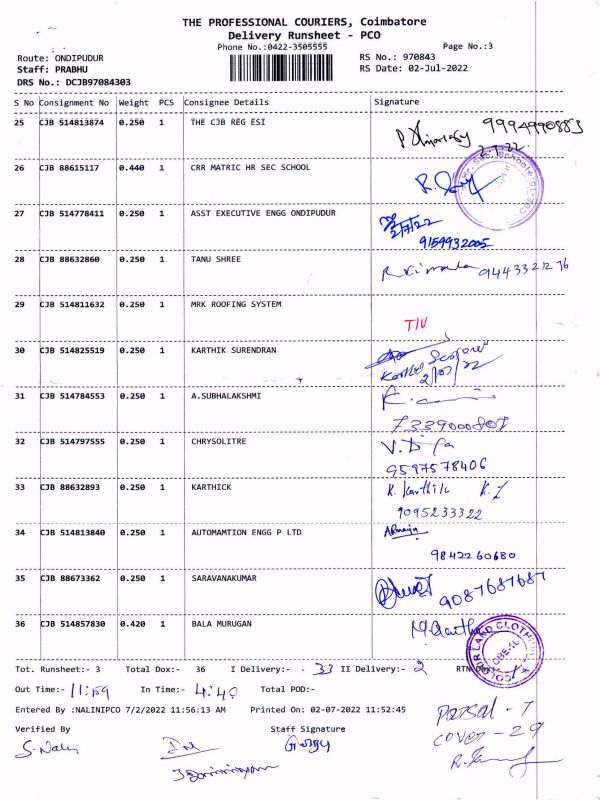 THE PROFESSIONAL COURIERS, Coimbatore
Delivery Runsheet - PCO
Phone No.:0422-3505555
Page No.:3
Route: ONDIPUDUR
RS No.: 970843
Staff: PRABHU
RS Date: 02-Jul-2022
DRS No.: DCJB97084303
S No Consignment No Weight PCS Consignee Details Signature
25 CJB 514813874 0.250 1 THE CJB REG ESI
9994990883
26 CJB 88615117 0.440 1 CRR MATRIC HR SEC SCHOOL
27 CJB 514778411 0.250 1 ASST EXECUTIVE ENGG ONDIPUDUR
2/7/22
9159932005
28 CJB 88632860 0.250 1 TANU SHREE
R Vimala
29 CJB 514811632 0.250 1 MRK ROOFING SYSTEM
30 CJB 514825519 0.250 1 KARTHIK SURENDRAN
2/07/22
31 CJB 514784553 0.250 1 A.SUBHALAKSHMI
32 CJB 514797555 0.250 1 CHRYSOLITRE
9597578406
33 CJB 88632893 0.250 1 KARTHICK
K. Karthik
9095233322
34 CJB 514813840 0.250 1 AUTOMAMTION ENGG P LTD
9842260680
35 CJB 88673362 0.250 1 SARAVANAKUMAR
9087687687
36 CJB 514857830 0.420 1 BALA MURUGAN
COLOUR LAND CLOTHING
Tot. Runsheet:- 3 Total Dox:- 36 I Delivery:- 33 II Delivery:- 2 RTN Dox:-
Out Time:- 11:59 In Time:- 4:40 Total POD:-
Entered By :NALINIPCO 7/2/2022 11:56:13 AM Printed On: 02-07-2022 11:52:45
Parsal - 7
Cover - 29
Verified By Staff Signature
S. Nalini